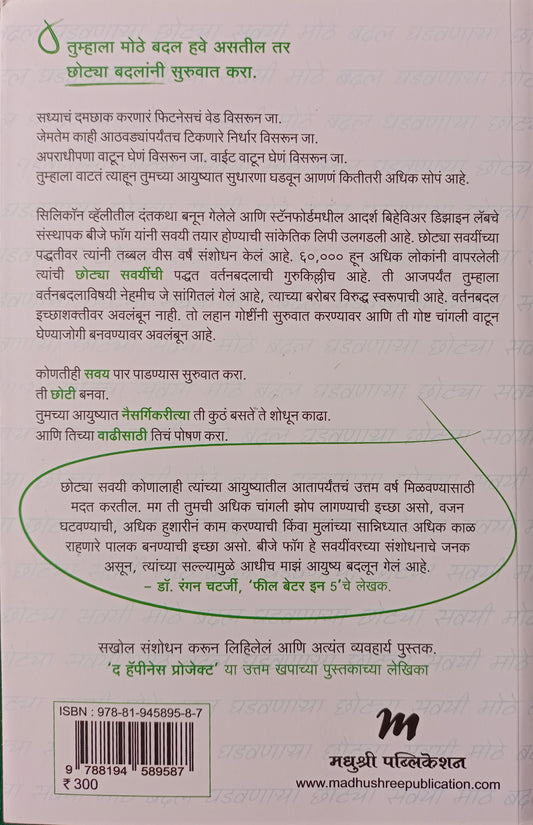 तुम्हाला मोठे बदल हवे असतील तर
छोट्या बदलांनी सुरुवात करा.
सध्याचं दमछाक करणारं फिटनेसचं वेड विसरून जा.
जेमतेम काही आठवड्यांपर्यंतच टिकणारे निर्धार विसरून जा.
अपराधीपणा वाटून घेणं विसरून जा. वाईट वाटून घेणं विसरून जा.
तुम्हाला वाटतं त्याहून तुमच्या आयुष्यात सुधारणा घडवून आणणं कितीतरी अधिक सोपं आहे.
सिलिकॉन व्हॅलीतील दंतकथा बनून गेलेले आणि स्टॅनफोर्डमधील आदर्श बिहेविअर डिझाइन लॅबचे
संस्थापक बीजे फॉग यांनी सवयी तयार होण्याची सांकेतिक लिपी उलगडली आहे. छोट्या सवयींच्या
पद्धतीवर त्यांनी तब्बल वीस वर्षं संशोधन केलं आहे. ६०,००० हून अधिक लोकांनी वापरलेली
त्यांची छोट्या सवयींची पद्धत वर्तनबदलाची गुरुकिल्लीच आहे. ती आजपर्यंत तुम्हाला
वर्तनबदलाविषयी नेहमीच जे सांगितलं गेलं आहे, त्याच्या बरोबर विरुद्ध स्वरूपाची आहे. वर्तनबदल
इच्छाशक्तीवर अवलंबून नाही. तो लहान गोष्टींनी सुरुवात करण्यावर आणि ती गोष्ट चांगली वाटून
घेण्याजोगी बनवण्यावर अवलंबून आहे.
कोणतीही सवय पार पाडण्यास सुरुवात करा.
ती छोटी बनवा.
तुमच्या आयुष्यात नैसर्गिकरीत्या ती कुठं बसते ते शोधून काढा.
आणि तिच्या वाढीसाठी तिचं पोषण करा.
छोट्या सवयी कोणालाही त्यांच्या आयुष्यातील आतापर्यंतचं उत्तम वर्ष मिळवण्यासाठी
मदत करतील. मग ती तुमची अधिक चांगली झोप लागण्याची इच्छा असो, वजन
घटवण्याची, अधिक हुशारीनं काम करण्याची किंवा मुलांच्या सान्निध्यात अधिक काळ
राहणारे पालक बनण्याची इच्छा असो. बीजे फॉग हे सवयींवरच्या संशोधनाचे जनक
असून, त्यांच्या सल्ल्यामुळे आधीच माझं आयुष्य बदलून गेलं आहे.
– डॉ. रंगन चटर्जी, 'फील बेटर इन 5'चे लेखक.
सखोल संशोधन करून लिहिलेलं आणि अत्यंत व्यवहार्य पुस्तक.
'द हॅपीनेस प्रोजेक्ट' या उत्तम खपाच्या पुस्तकाच्या लेखिका
ISBN : 978-81-945895-8-7
9 788194 589587
₹ 300
मधुश्री पब्लिकेशन
www.madhushreepublication.com